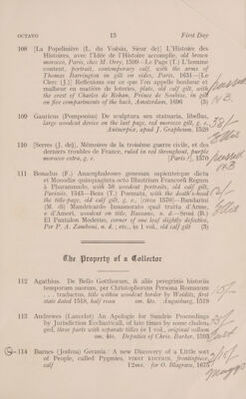 OCTAVO 13 First Day
108 (La Popelinière (L. du Voisin, Sieur de)] L'Histoire des
Histoires, avec l'Idée de l'Histoire accomplie, old brown
morocco, Paris, chez M. Orry, 1599—Le Page (T.) L'homme
content, portrait, contemporary calf, with the arms of
Thomas Barrington in gilt on sides, Paris, 1631—[Le
Clerc (J.)] Reflexions sur ce que l'on appelle bonheur et
malheur en matière de loteries, plate, old calf gilt, with
the crest of Charles de Rohan, Prince de Soubise, in gilt
on five compartments of the back, Amsterdam, 1696 (3)
109 Gauricus (Pomponius) De sculptura seu statuaria, libellus,
large woodcut device on the last page, red morocco gilt, g. e.
Antverpiae, apud J. Grapheum, 1528
110 [Serres (J. de)], Mémoires de la troisième guerre civile, et des
derniers troubles de France, ruled in red throughout, purple
morocco extra, g. e. [Paris?], 1570
111 Bonadus (F.) Anacephaleoses generum sapientumque dicta
et Monodie quinquaginta octo Illustrium Francorū Regum
à Pharamundo, with 58 woodcut portraits, old calf gilt,
Parisiis, 1543—Beza (T.) Portraits, with the death's-head
the title-page, old calf gilt, g. e., (circa 1570)—Bandarini
(M. di) Mandricardo Innamorato qual tratta d'Arme,
e d'Amori, woodcut on title, Bassano, n. d.—Sessi (B.)
Il Pantalon Moderne, corner of one leaf slightly defective,
Per P. A. Zamboni, n. d., etc., in 1 vol., old calf gilt (3)
The Property of a Collector
112 Agathius. De Bello Gotthorum, & aliis peregrinis historiis
temporum suorum, per Christophorum Persona Romanum
. . . traductus, title within woodcut border by Weiditz, first
state dated 1518, half roan sm. 4to. Augsburg, 1519
113 Andrewes (Lancelot) An Apologie for Sundrie Proceedings
by Jurisdiction Ecclesiasticall, of late times by some challenged,
three parts with separate titles in 1 vol., original vellum
sm. 4to. Deputies of Chris. Barker, 1593
114 Barnes (Joshua) Gerania: A new Discovery of a Little sort
of People, called Pygmies, FIRST EDITION, frontispiece,
calf 12mo. for O. Blagrave, 1675